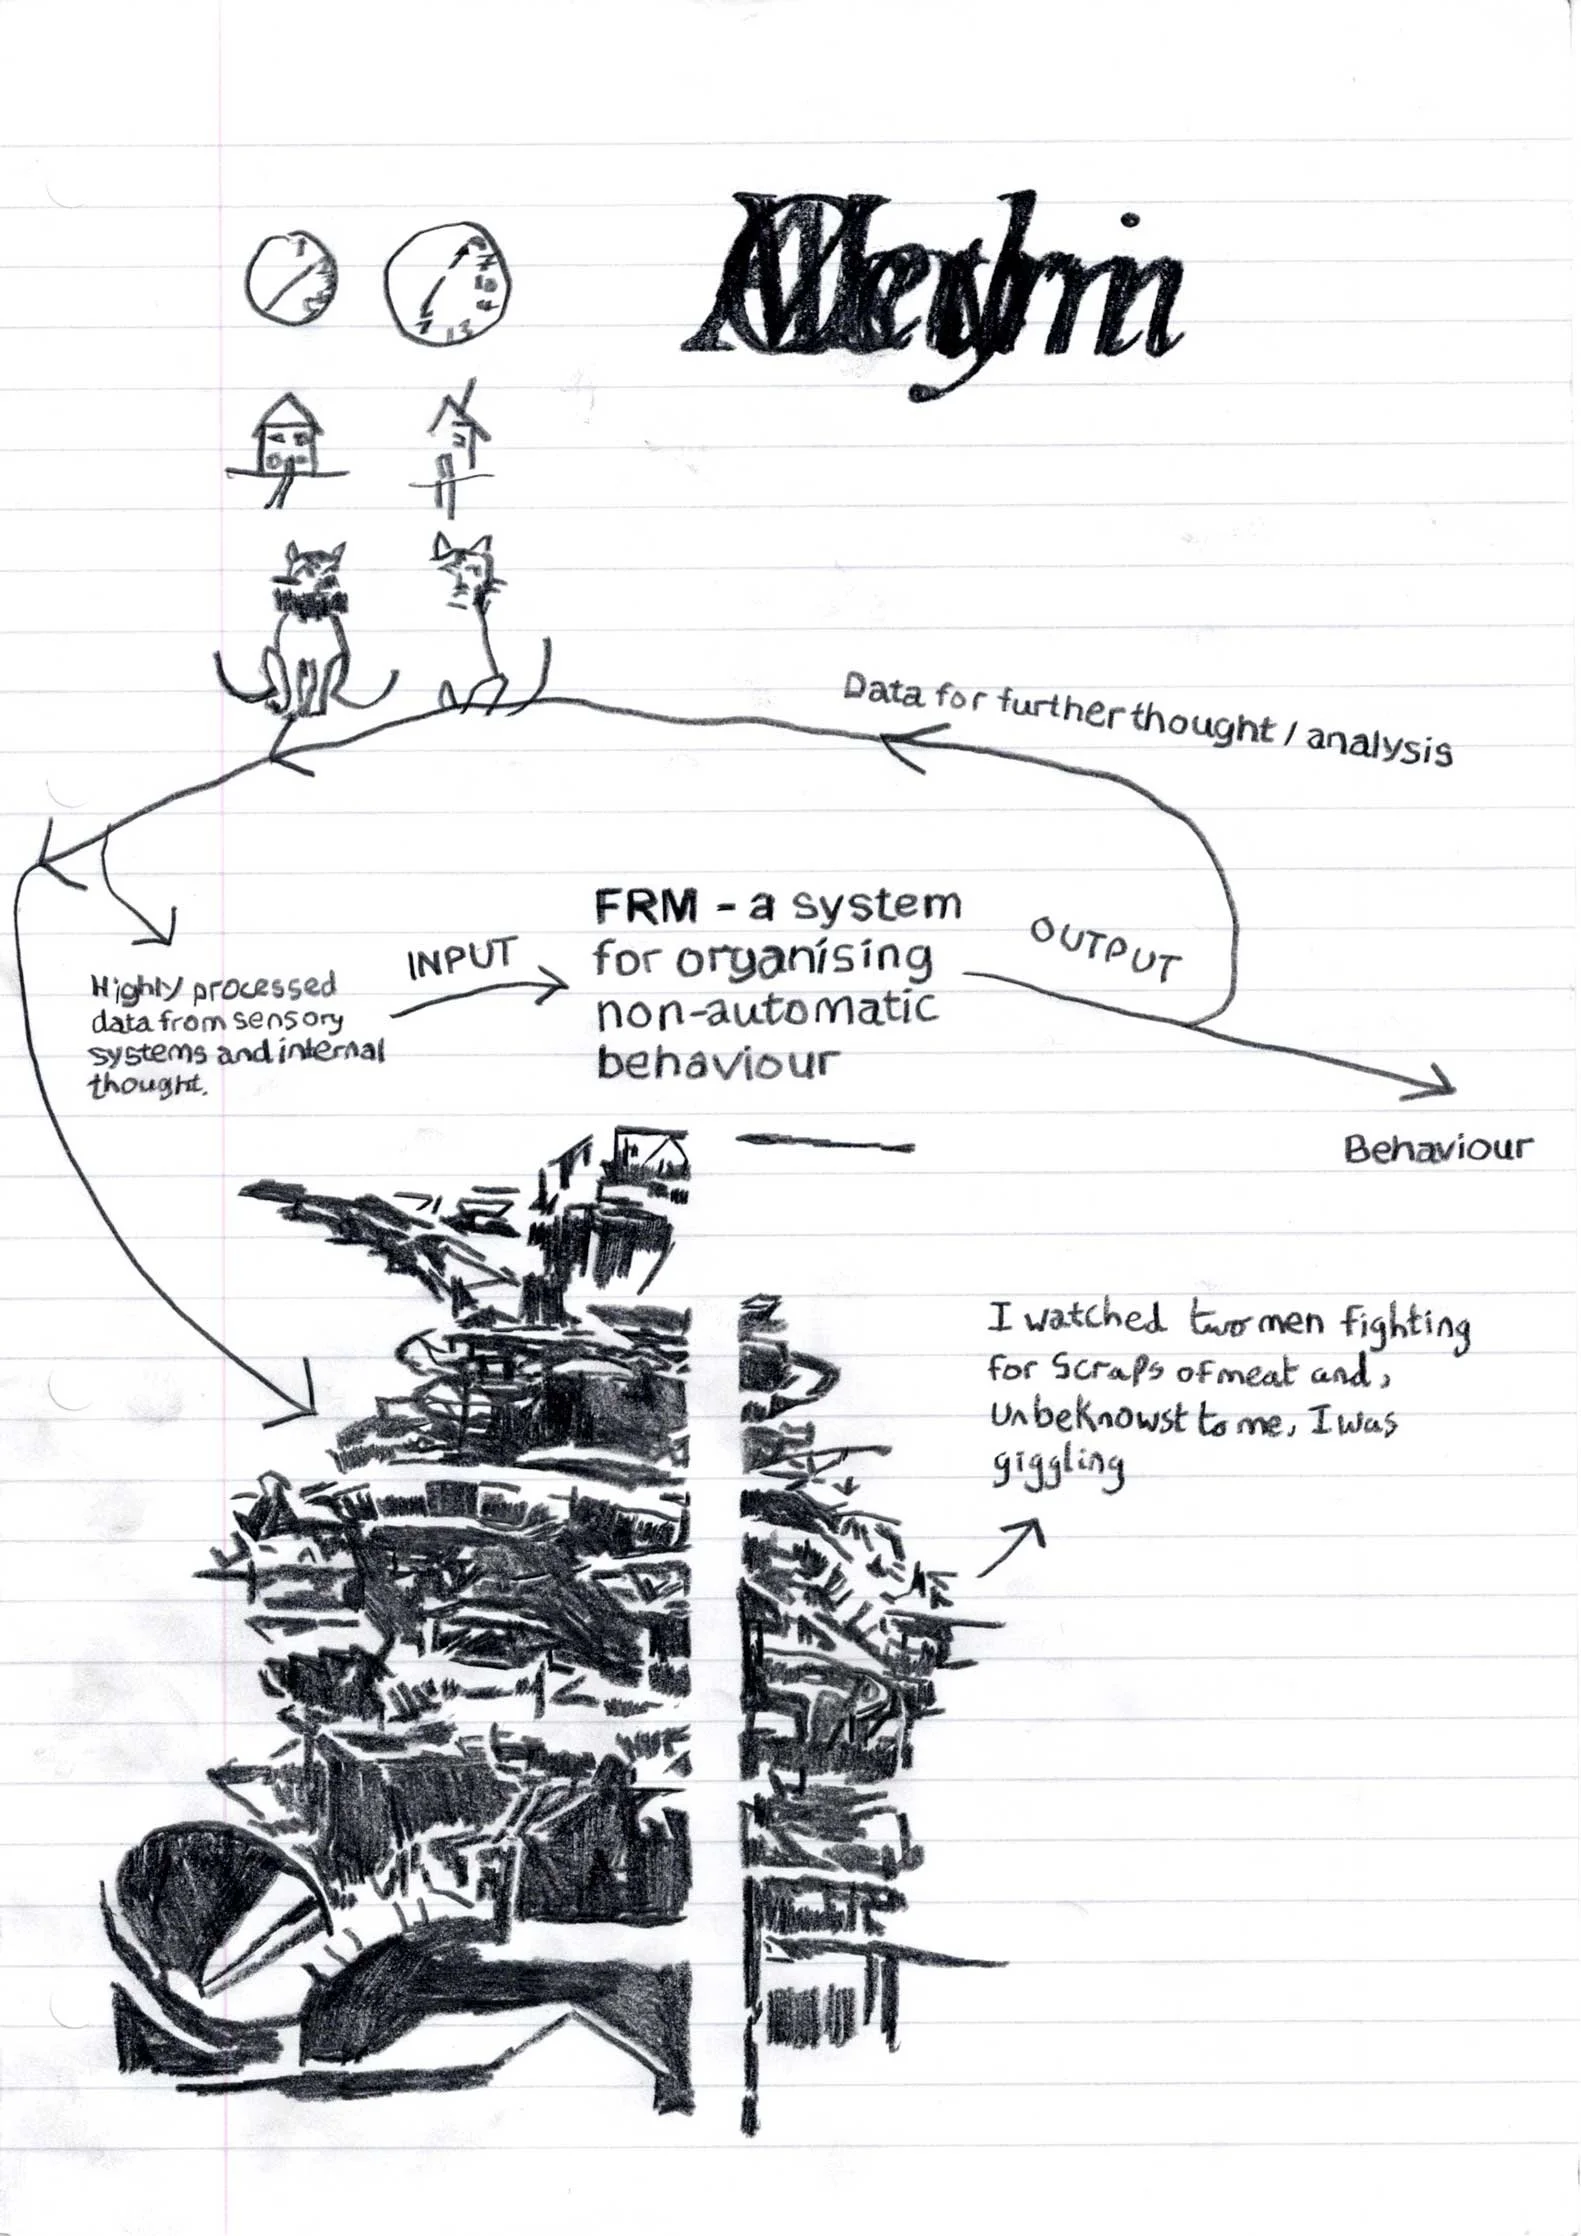 Data for further thought / analysis
FRM - a system
for organising
non-automatic
behaviour
OUTPUT
INPUT
Highly processed
data from sensory
systems and internal
thought.
Behaviour
I watched two men fighting
for scraps of meat and,
Unbeknowst to me, I was
giggling